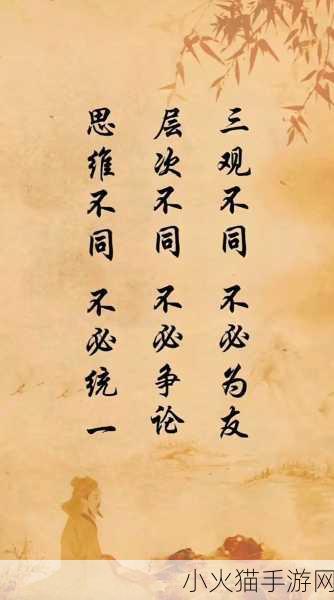 三观不同 不必为友
层次不同 不必争论
思维不同 不必统一
小火猫手游网